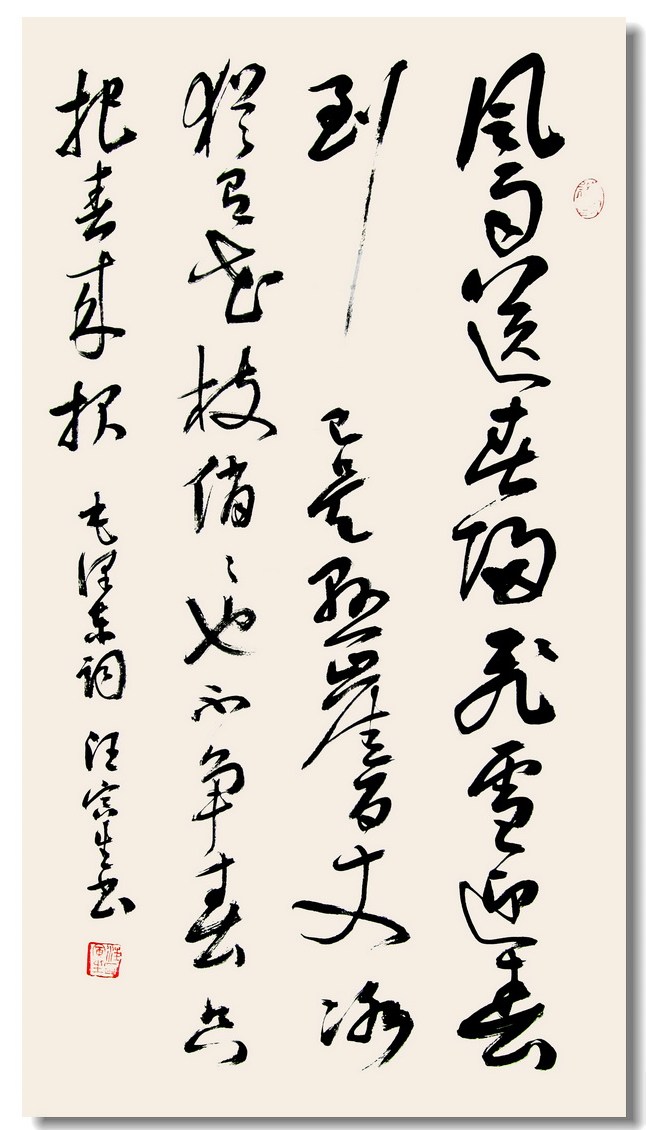 風雨送春歸飛雪迎春
到已是懸崖百丈冰
猶有花枝俏々也不争春只
把春來报毛澤東詞汪生书